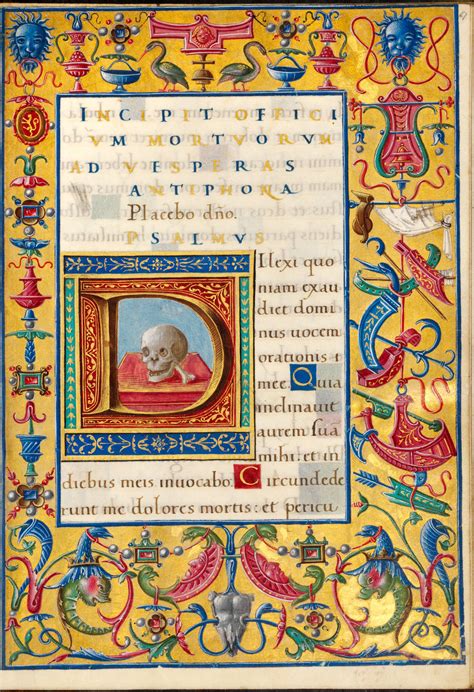 INCIPIT OFFICI
VM MORTVORVM
AD VESPERAS
ANTIPHONA
Placebo dño.
PSALMVS
DIlexi quo
niam exau
diet domi
nus uocem
orationis
mee. Quia
inclinauit
aurem suā
mihi: et ĩ
diebus meis inuocabo. Circundede
runt me dolores mortis: et pericu